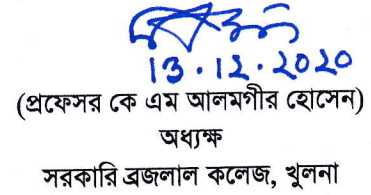 13.12.2020
(প্রফেসর কে এম আলমগীর হোসেন)
অধ্যক্ষ
সরকারি ব্রজলাল কলেজ, খুলনা